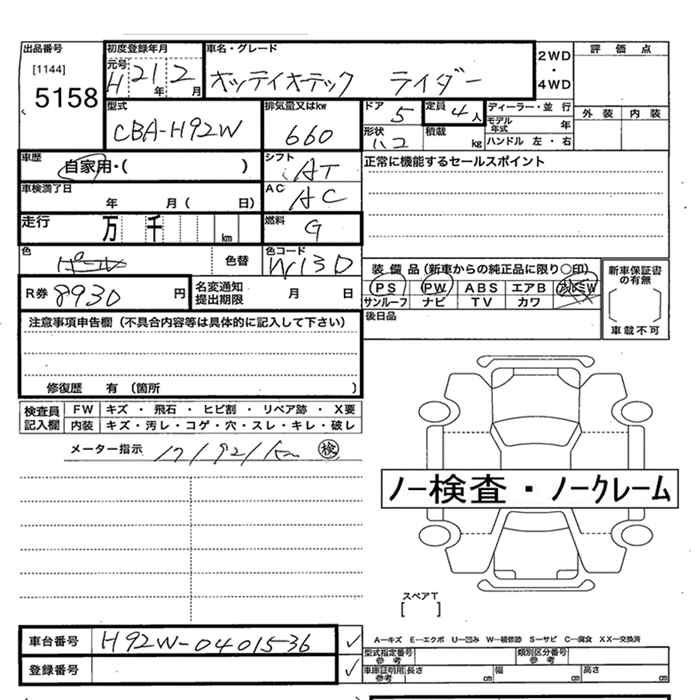 出品番号
[1144]
5158
初度登録年月
元号
H 21 年 2 月
車名・グレード
オッティオーテック ライダー
2WD
・
4WD
評価点
外装 内装
型式
CBA-H92W
排気量又はkw
660
ドア
5
定員
4人
ディーラー・並行
モデル年式 年
形状
ハコ
積載 kg
ハンドル 左・右
車歴
自家用・( )
シフト
AT
正常に機能するセールスポイント
車検満了日
年 月( 日)
AC
AC
走行
万 千 km
燃料
G
色
パール
色替
色コード
W13D
装備品(新車からの純正品に限り○印)
PS PW ABS エアB
サンルーフ ナビ TV カワ
新車保証書の有無
[ ]
車載不可
R券 8930 円
名変通知
提出期限
月 日
後日品
注意事項申告欄(不具合内容等は具体的に記入して下さい)
修復歴 有(箇所 )
検査員
記入欄
FW キズ・飛石・ヒビ割・リペア跡・X要
内装 キズ・汚レ・コゲ・穴・スレ・キレ・破レ
メーター指示 171921km 検
ノー検査・ノークレーム
スペアT
[ ]
車台番号 H92W-0401536
登録番号
A―キズ E―エクボ U―凹み W―補修跡 S―サビ C―腐食 XX―交換済
型式指定番号
参考
類別区分番号
参考
車庫証明用
参考
長さ cm 幅 cm 高さ cm